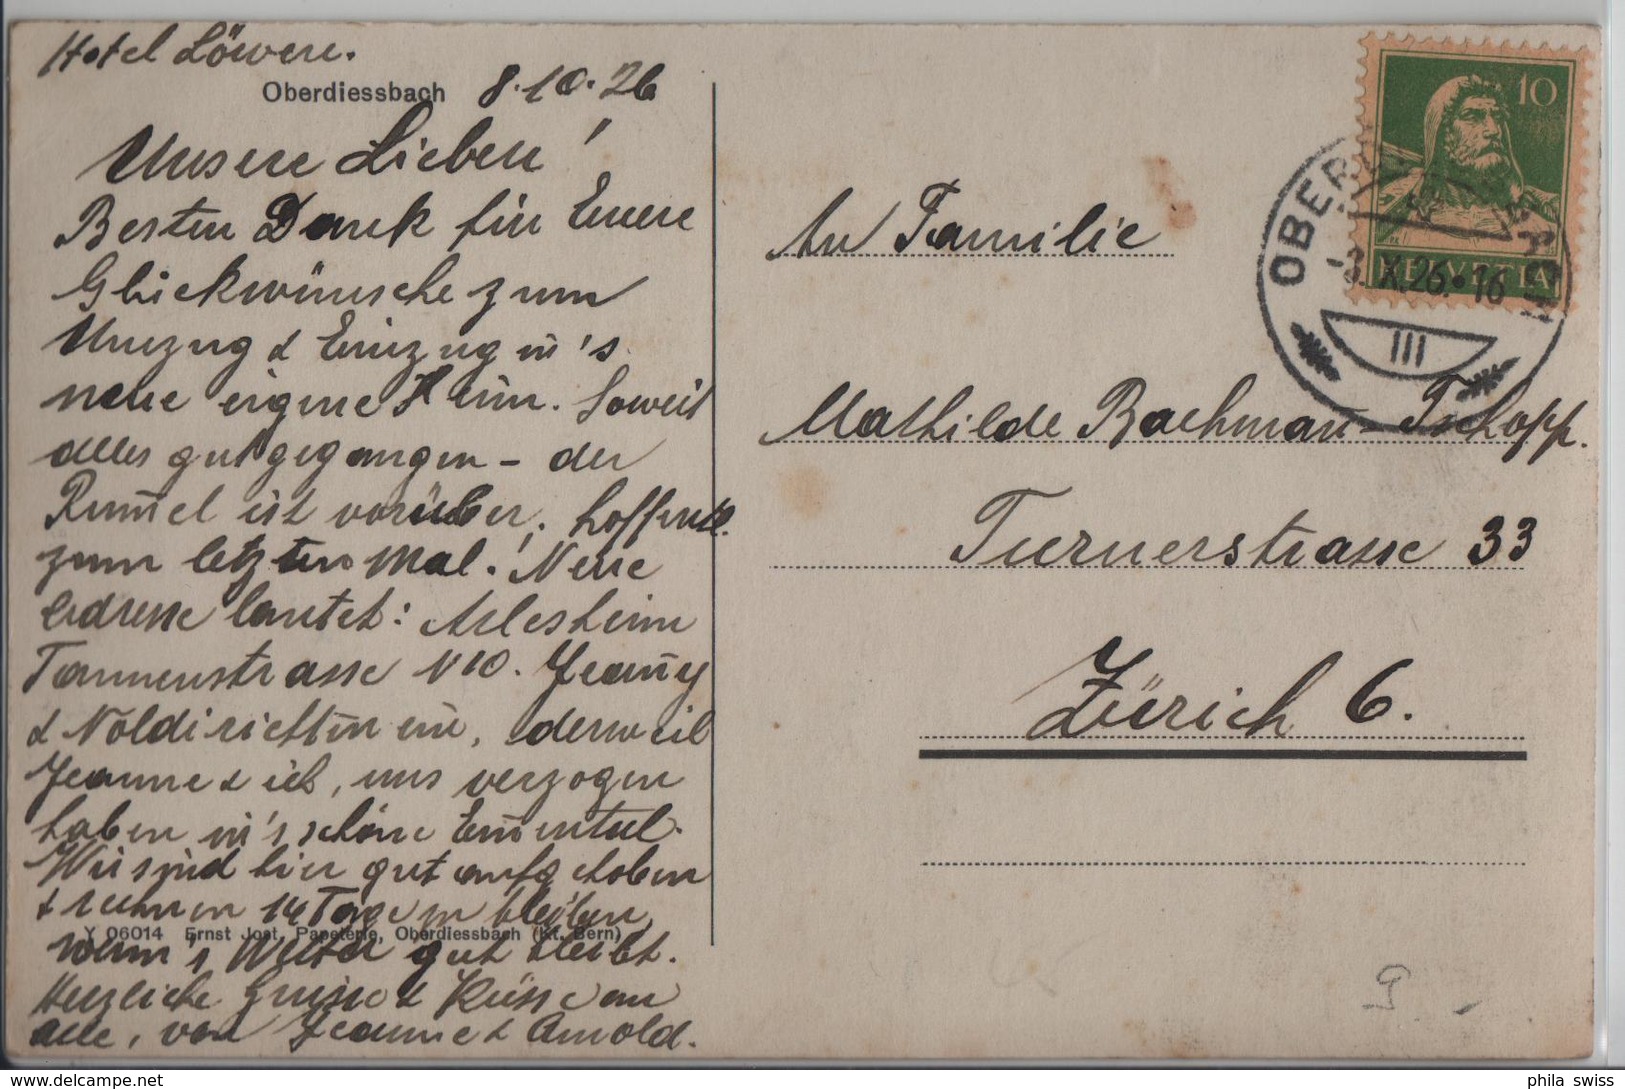 Hotel Löwen.
Oberdiessbach 8.10.26
Unsere Lieben!
Besten Dank für Euere
Glückwünsche zum
Umzug & Einzug in's
neue eigene Heim. Soweit
alles gut gegangen – der
Rum̅el ist vorüber, hoffentl.
zum letzten Mal! Neue
Adresse lautet: Arlesheim
Tannenstrasse N 10. Jean̅y
& Noldi richten ein, derweil
Jeanne & ich, uns verzogen
haben in's schöne Em̅ental.
Wir sind hier gut aufgehoben
& rechnen 14 Tage zu bleiben,
wenn's Wetter gut bleibt.
Herzliche Grüsse & Küsse an
alle, von Jeanne & Arnold.
Y 06014 Ernst Jost, Papeterie, Oberdiessbach (Kt. Bern)
An Familie
Mathilde Bachman-Tschopp.
Turnerstrasse 33
Zürich 6.
10
HELVETIA
OBERDIESSBACH
-3.X.26.•16
III
phila swiss